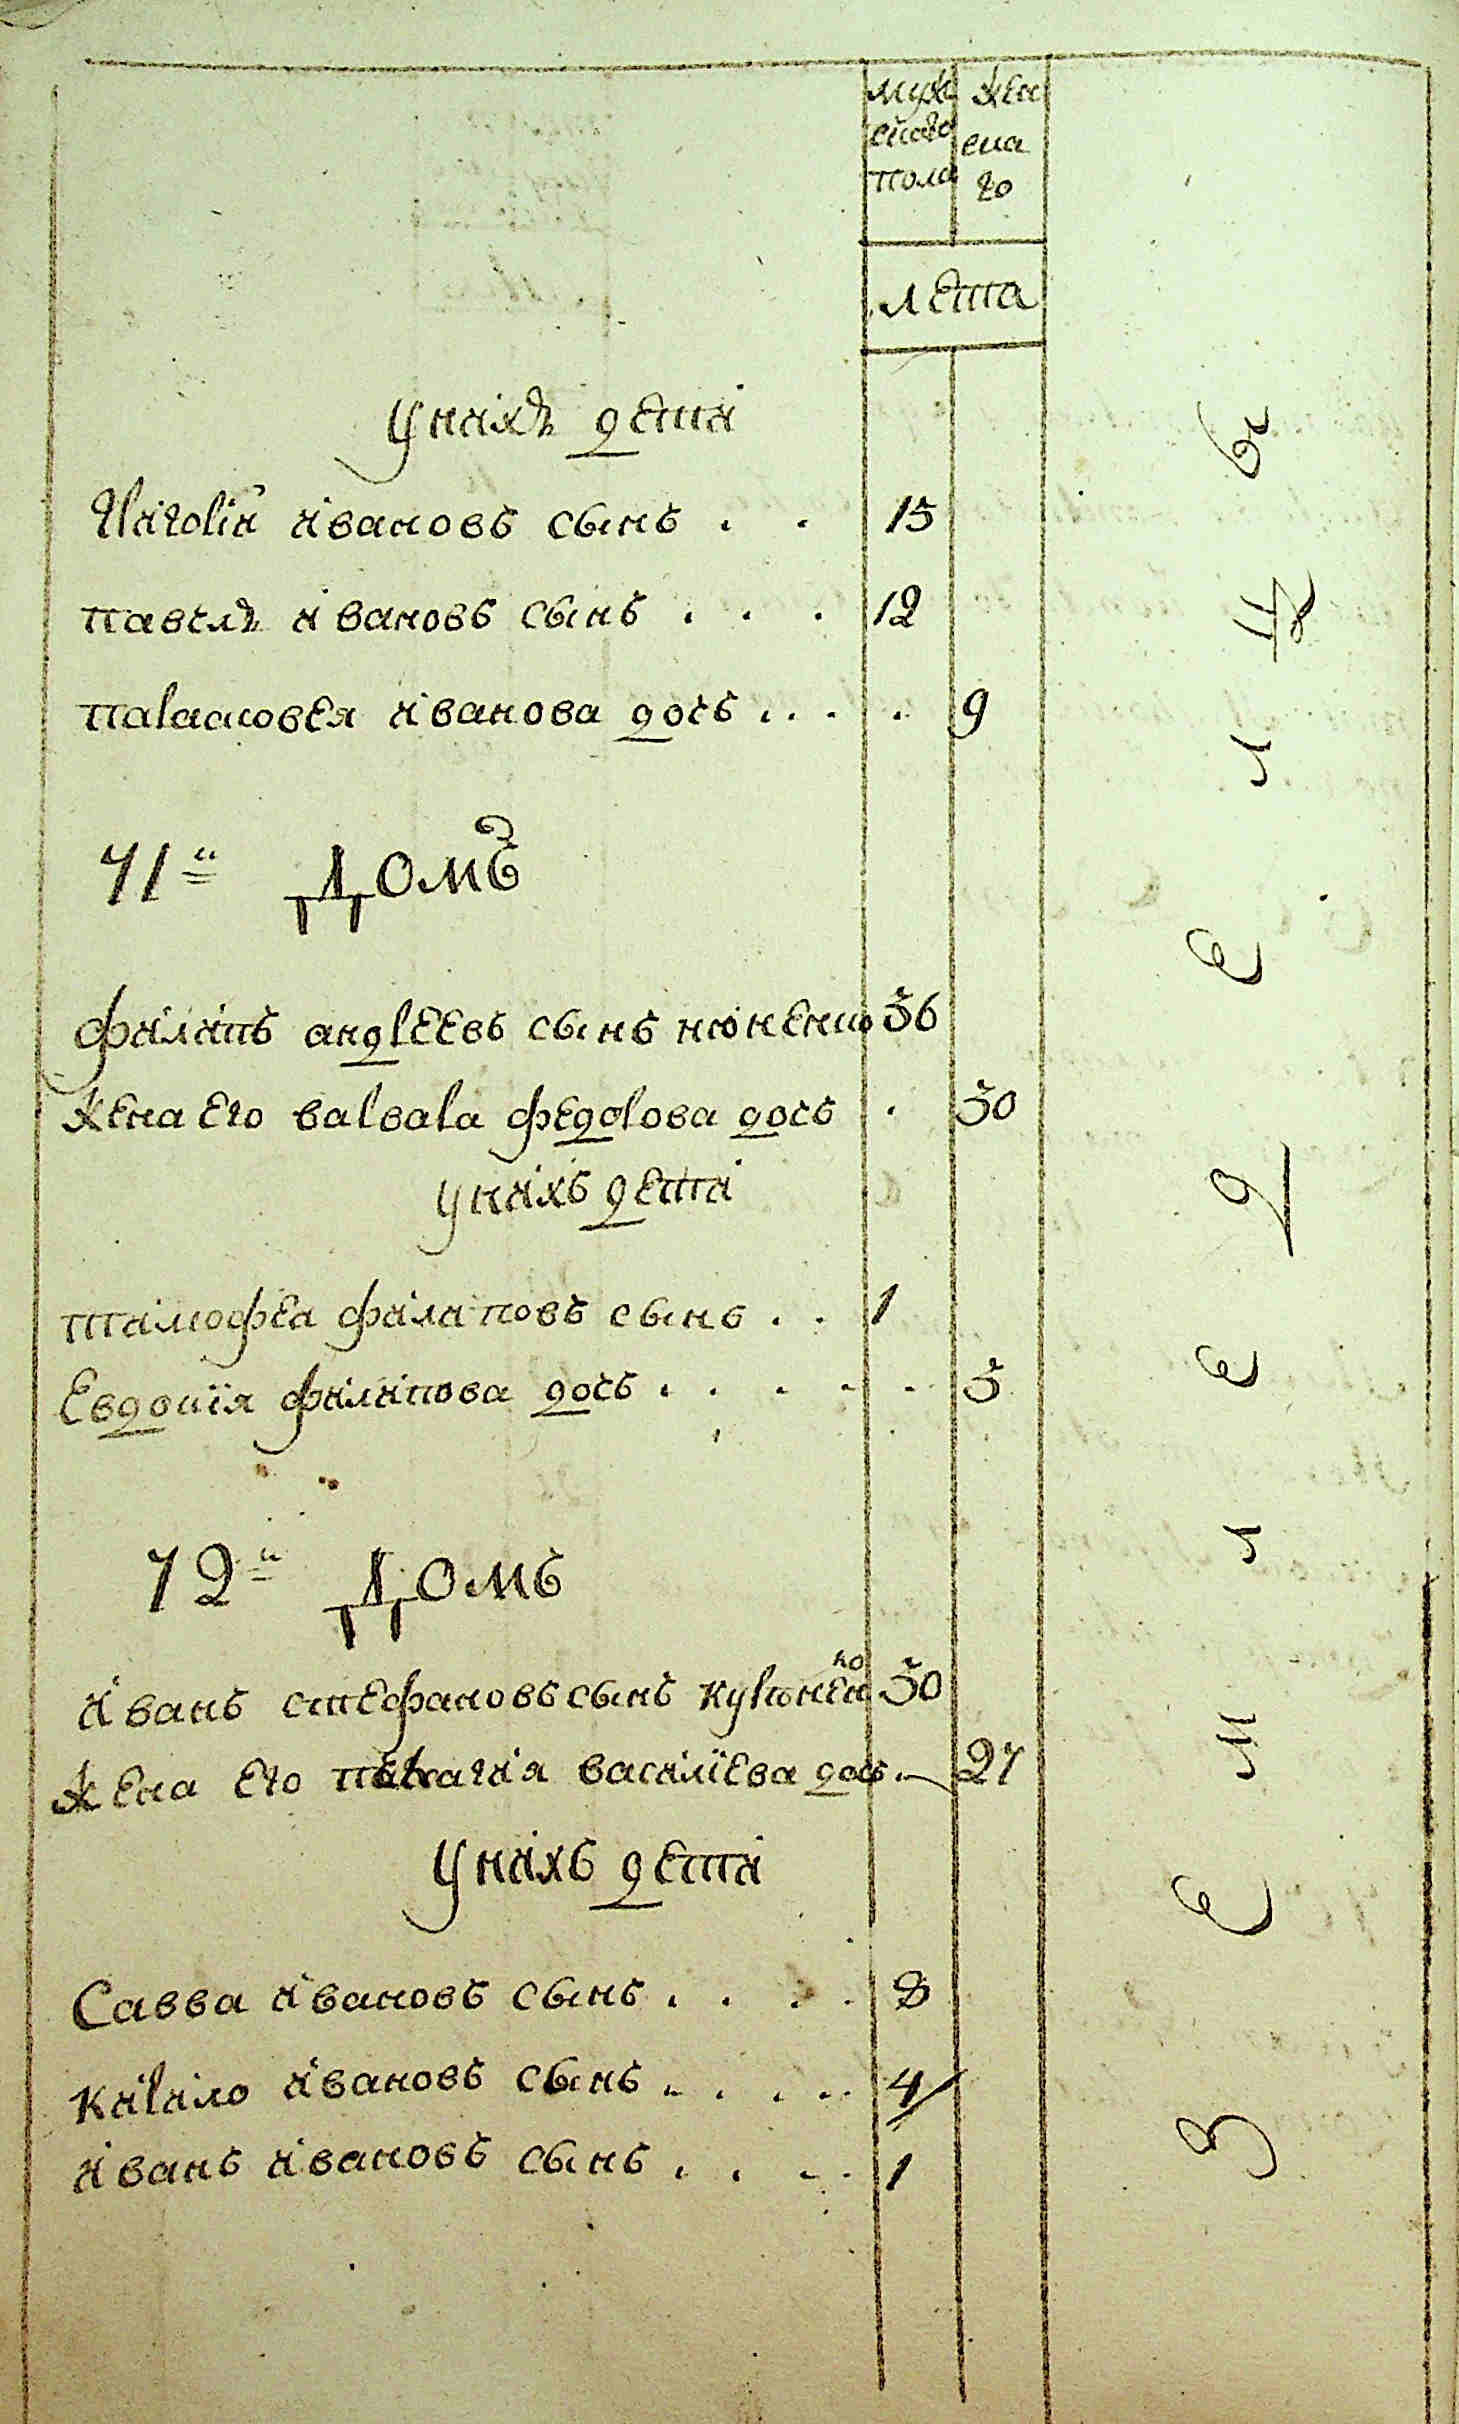 муж жен
скаго ска
пола го
лета
у нихъ дети
Григорій иванов сынъ . . 15
павелъ ивановъ сынъ . . . 12
парасковея иванова дочь . . . . 9
71й Домъ
филипъ андреевъ сынъ 36
жена его варвара федорова дочь . 30
у нихъ дети
тимофеи филиповъ сынъ . . 1
Евдокія филипова дочь . . . . . 3
72й Домъ
иванъ стефановъ сынъ 30
жена его пелагия василіева дочь . 27
у нихъ дети
Савва ивановъ сынъ . . . . 8
кирило ивановъ сынъ . . . . 4
иванъ ивановъ сынъ . . . . 1
Земеделецъ